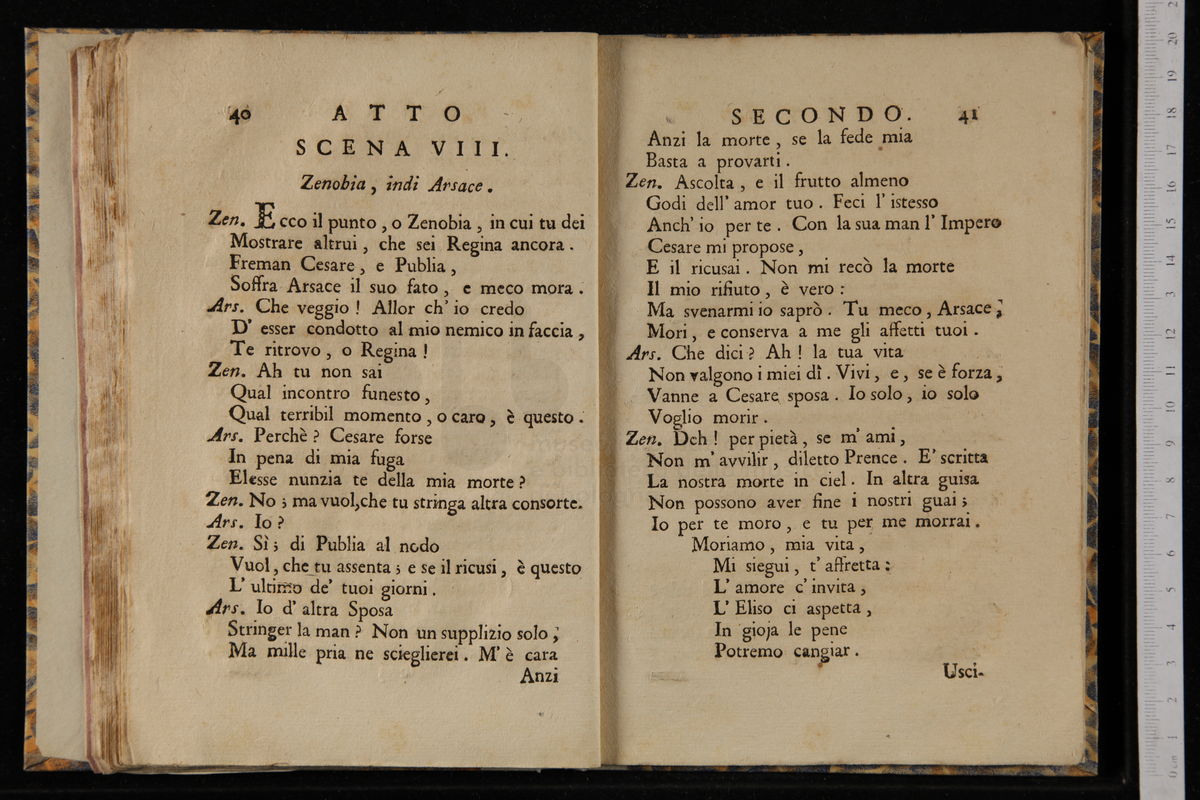 40 ATTO
SCENA VIII.
Zenobia, indi Arsace.
Zen. Ecco il punto, o Zenobia, in cui tu dei
Mostrare altrui, che sei Regina ancora.
Freman Cesare, e Publia,
Soffra Arsace il suo fato, e meco mora.
Ars. Che veggio! Allor ch' io credo
D' esser condotto al mio nemico in faccia,
Te ritrovo, o Regina!
Zen. Ah tu non sai
Qual incontro funesto,
Qual terribil momento, o caro, è questo.
Ars. Perchè? Cesare forse
In pena di mia fuga
Elesse nunzia te della mia morte?
Zen. No; ma vuol, che tu stringa altra consorte.
Ars. Io?
Zen. Sì; di Publia al nodo
Vuol, che tu assenta; e se il ricusi, è questo
L' ultimo de' tuoi giorni.
Ars. Io d' altra Sposa
Stringer la man? Non un supplizio solo,
Ma mille pria ne scieglierei. M' è cara
Anzi
SECONDO. 41
Anzi la morte, se la fede mia
Basta a provarti.
Zen. Ascolta, e il frutto almeno
Godi dell' amor tuo. Feci l' istesso
Anch' io per te. Con la sua man l' Impero
Cesare mi propose,
E il ricusai. Non mi recò la morte
Il mio rifiuto, è vero:
Ma svenarmi io saprò. Tu meco, Arsace;
Mori, e conserva a me gli affetti tuoi.
Ars. Che dici? Ah! la tua vita
Non valgono i miei dì. Vivi, e, se è forza,
Vanne a Cesare sposa. Io solo, io solo
Voglio morir.
Zen. Deh! per pietà, se m' ami,
Non m' avvilir, diletto Prence. E' scritta
La nostra morte in ciel. In altra guisa
Non possono aver fine i nostri guai;
Io per te moro, e tu per me morrai.
Moriamo, mia vita,
Mi siegui, t' affretta:
L' amore c' invita,
L' Eliso ci aspetta,
In gioja le pene
Potremo cangiar.
Usci-